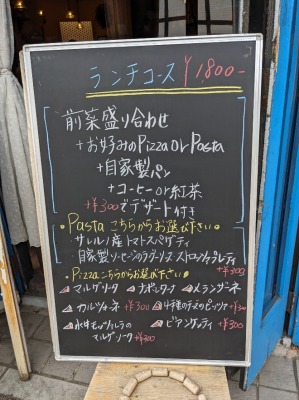 ランチコース ¥1800-
前菜盛り合わせ
+お好みのPizza or Pasta
+自家製パン
+コーヒーor紅茶
+¥300でデザート付き
・Pasta こちらからお選び下さい・
サレルノ産トマトスパゲティ
自家製ソーセージのラグーソース ストロッツァプレティ
+¥300
・Pizza こちらからお選び下さい・
マルゲリータ ナポレターナ メランザーネ
カルツォーネ +¥300 4種のチーズのピッツァ +¥300
水牛モッツァレラの ビアンケッティ +¥300
マルゲリータ +¥300